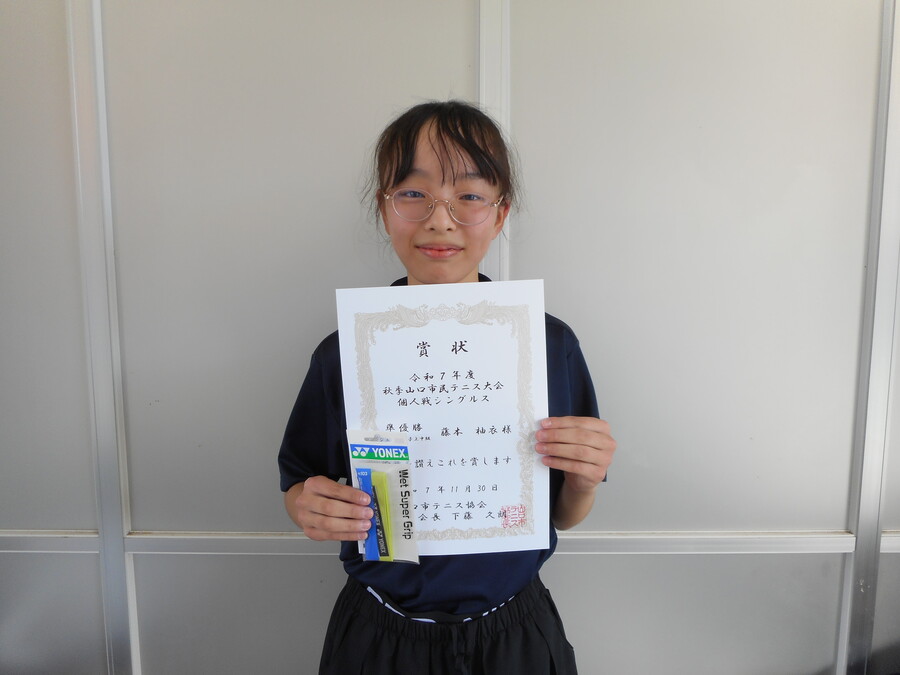 賞 状
令和7年度
秋季山口市民テニス大会
個人戦シングルス
準優勝 藤本 柚衣様
讃えこれを賞します
7年11月30日
市テニス協会
会長 下藤 文
YONEX
Wet Super Grip
YONEX